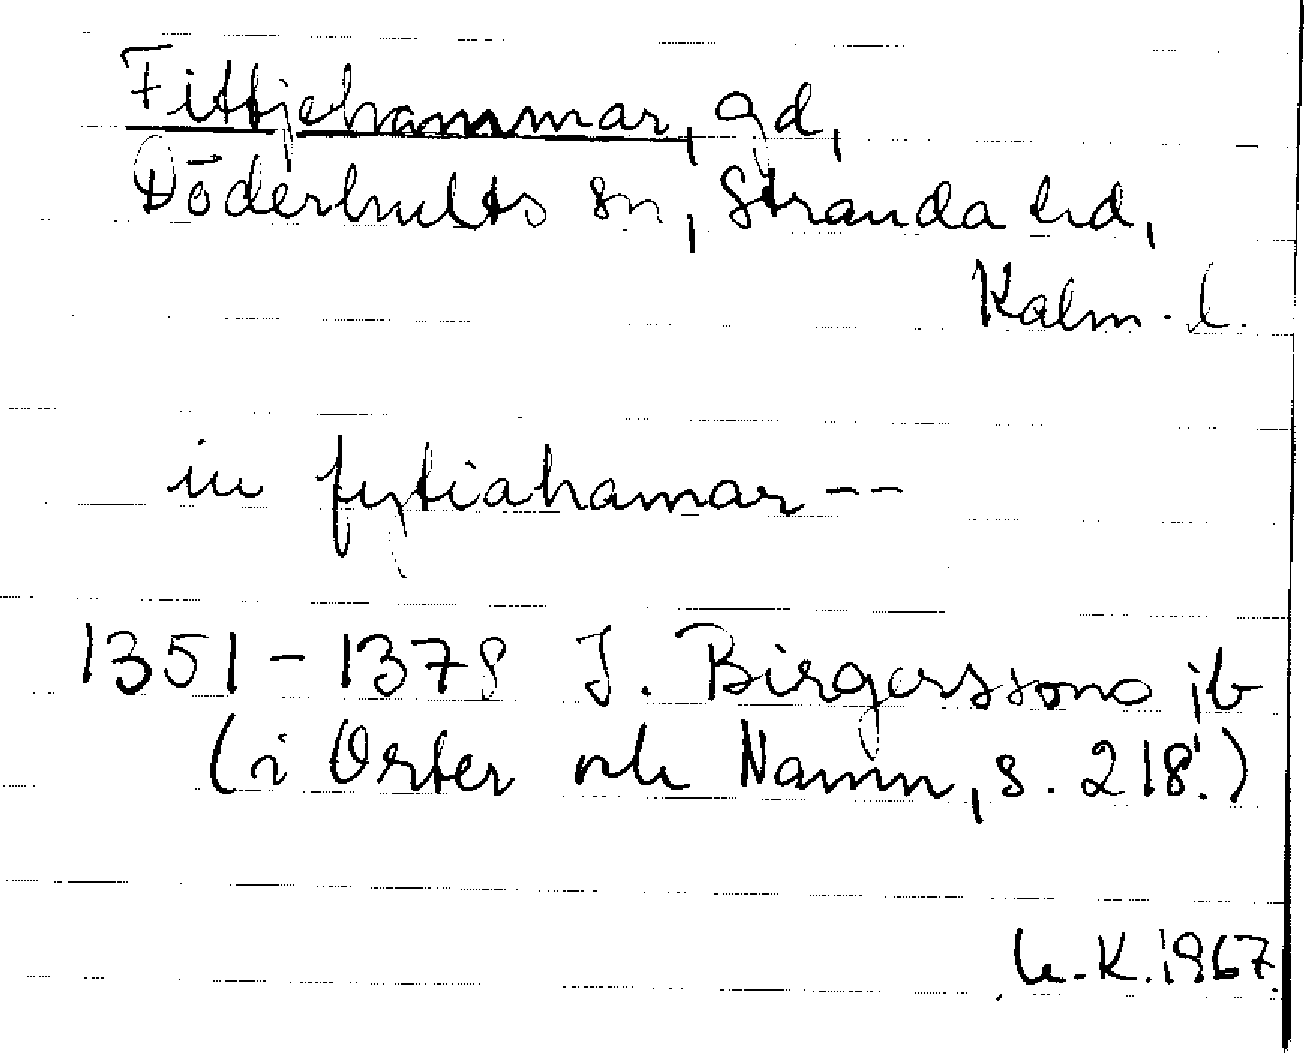 Fittjehammar, gd,
Döderhults sn, Stranda hd,
Kalm. l.
in fytiahamar --
1351-1378 J. Birgerssons jb
(i Orter och Namn, s. 218.)
K. 1967